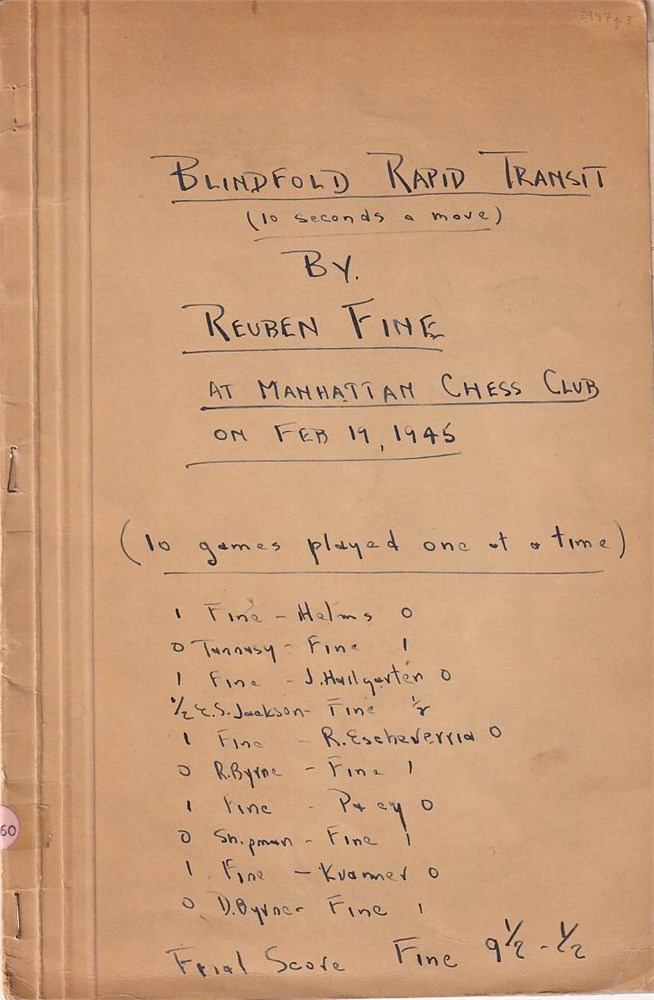 2947g.3
BLINDFOLD RAPID TRANSIT
(10 seconds a move)
BY.
REUBEN FINE
AT MANHATTAN CHESS CLUB
ON FEB 19, 1945
(10 games played one at a time)
1 Fine - Helms 0
0 Tannasy - Fine 1
1 Fine - J. Hallgarten 0
½ E.S. Jackson - Fine ½
1 Fine - R. Escheverria 0
0 R. Byrne - Fine 1
1 Fine - 0
60
0 Shipman - Fine 1
1 Fine - Kramer 0
0 D. Byrne - Fine 1
Final Score Fine 9½ - ½